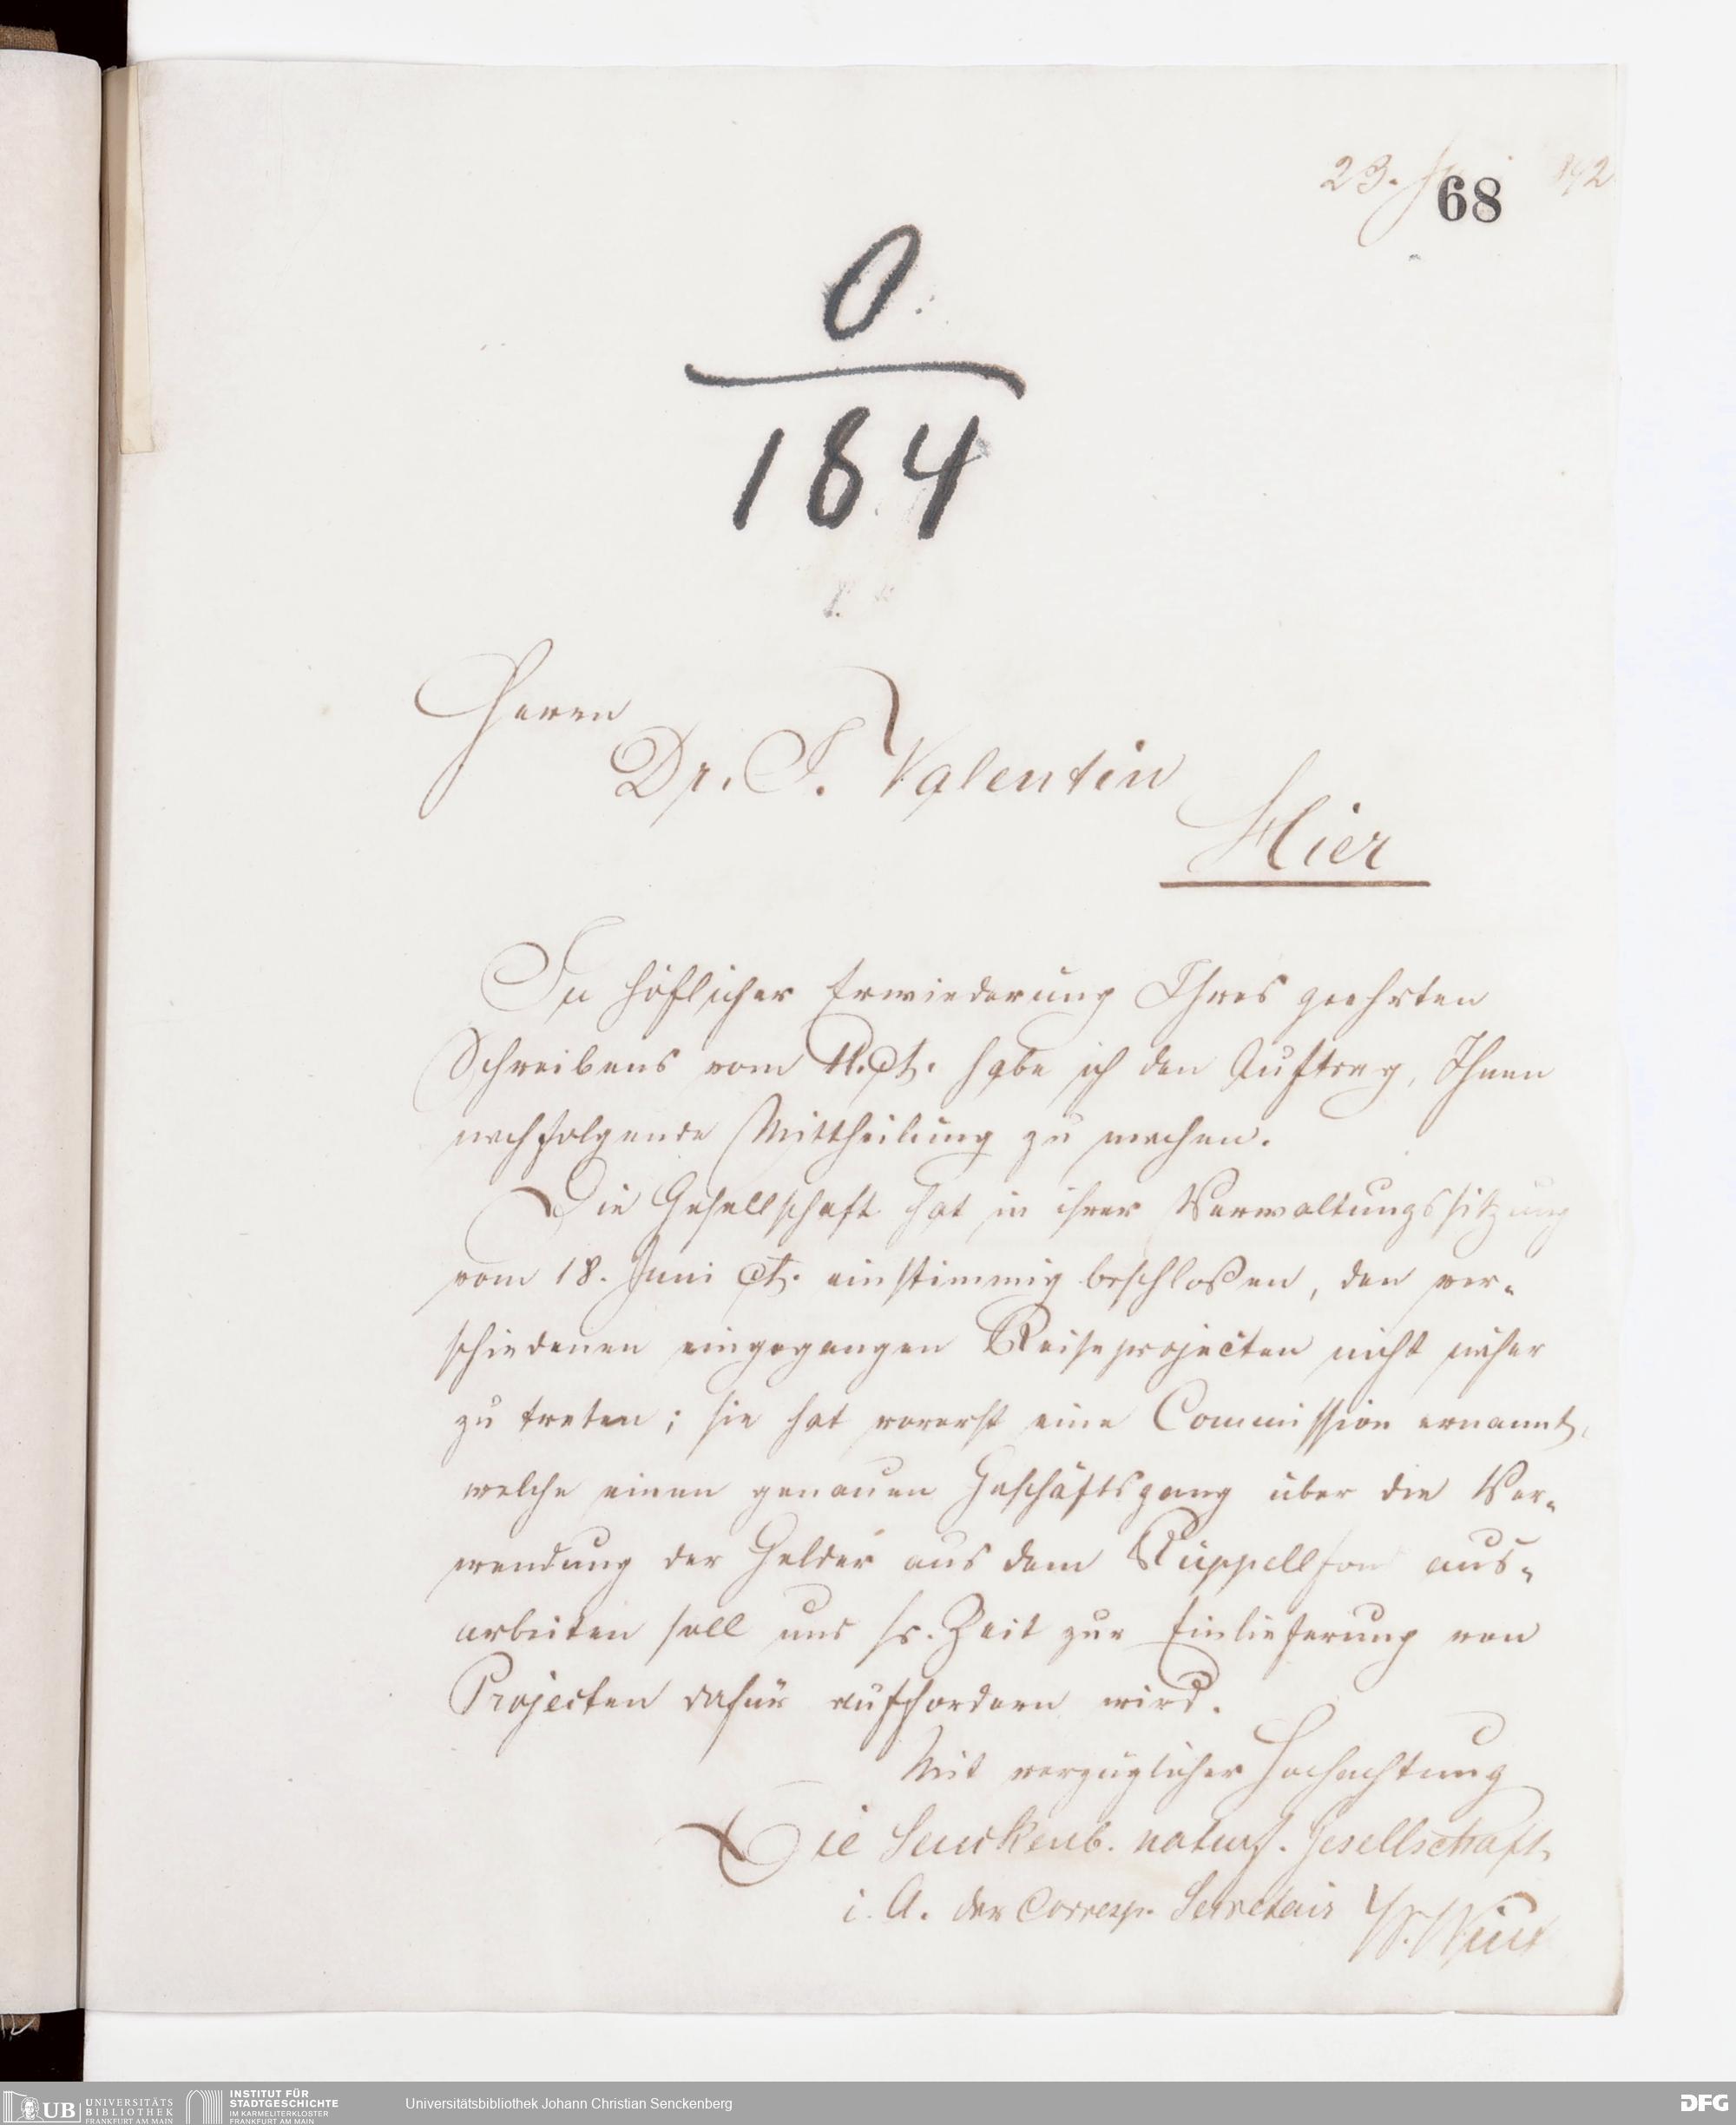 23. 192
68
O
184
Herrn
Dr. J. Valentin
Hier
In höflicher Erwiederung Ihres geehrten
Schreibens vom 11. ct. habe ich den Auftrag, Ihnen
nachfolgende Mittheilung zu machen.
Die Gesellschaft hat in ihrer Verwaltungssitzung
vom 18. Juni ct. einstimmig beschloßen, den ver-
schiedenen eingegangen Reiseprojecten nicht näher
zu treten; sie hat vorerst eine Commission ernannt,
welche einen genauen Geschäftsgang über die Ver-
wendung der Gelder aus dem Rüppellfond aus-
arbeiten soll und sr. Zeit zur Einlieferung von
Projecten dafür auffordern wird.
Mit vorzüglicher Hochachtung
Die Senckenb. naturf. Gesellschaft,
i. A. der Corresp. Secretair W. Winter
UB UNIVERSITÄTS
BIBLIOTHEK
FRANKFURT AM MAIN
INSTITUT FÜR
STADTGESCHICHTE
IM KARMELITERKLOSTER
FRANKFURT AM MAIN
Universitätsbibliothek Johann Christian Senckenberg
DFG